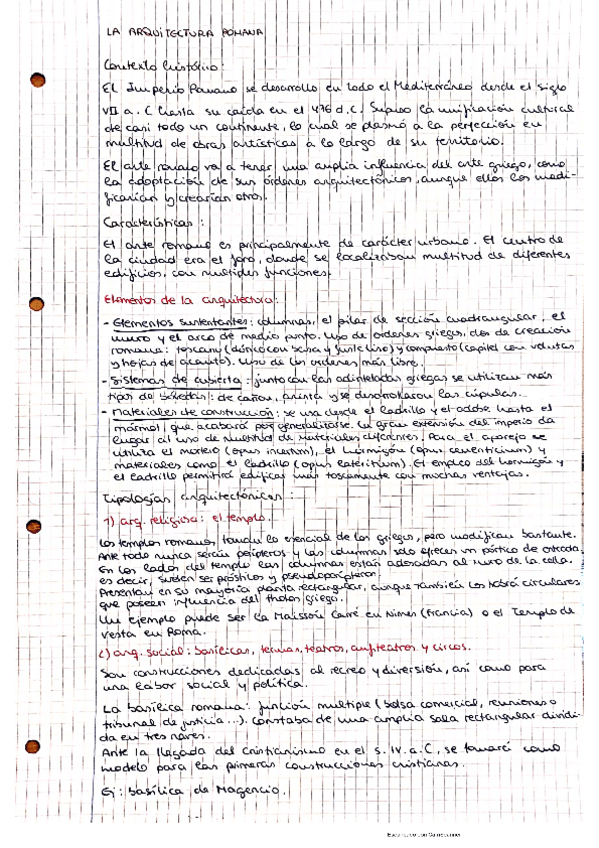 LA ARQUITECTURA ROMANA
Contexto histórico:
El Imperio Romano se desarrollo en todo el Mediterráneo desde el siglo
VII a.C hasta su caída en el 476 d.C. Supuso la unificación cultural
de casi todo un continente, lo cual se plasmó a la perfección en
multitud de obras artísticas a lo largo de su territorio.
El arte romano va a tener una amplia influencia del arte griego, como
la adoptación de sus órdenes arquitectónicos, aunque ellos los modi-
ficarían y crearían otros.
Características:
El arte romano es principalmente de carácter urbano. El centro de
la ciudad era el foro, donde se localizaban multitud de diferentes
edificios, con multiples funciones.
Elementos de la arquitectura:
- Elementos sustentantes: columnas, el pilar de sección cuadrangular, el
muro y el arco de medio punto. Uso de ordenes griegos, dos de creación
romana: toscano (dórico con basa y fuste liso) y compuesto (capitel con volutas
y hojas de acanto). Uso de los ordenes más libre.
- Sistemas de cubierta: junto con las adinteladas griegas se utilizan más
tipos de bóvedas: de cañon, arista y se desarrollaron las cúpulas.
- Materiales de construcción: se usa desde el ladrillo y el adobe hasta el
mármol, que acabará por generalizarse. La gran extensión del imperio da
lugar al uso de multitud de materiales diferentes. Para el aparejo se
utiliza el mortero (opus incertum), el hormigón (opus cementicium) y
materiales como el ladrillo (opus latericium). El empleo del hormigón y
el ladrillo permitirá edificar más toscamente con muchas ventajas.
Tipologías arquitectónicas:
1) arq. religiosa: el templo.
Los templos romanos toman lo esencial de los griegos, pero modifican bastante.
Ante todo nunca serán perípteros y las columnas solo ofrecen un pórtico de entrada.
En los lados del templo las columnas están adosadas al muro de la cella.
es decir, suelen ser próstilos y pseudoperípteros.
Presentan en su mayoría planta rectangular, aunque también los habrá circulares
que poseen influencia del tholos griego.
Un ejemplo puede ser la Maissón Carré en Nimes (Francia) o el Templo de
Vesta en Roma.
2) arq. social: basílicas, termas, teatros, anfiteatros y circos.
Son construcciones dedicadas al recreo y diversión, así como para
una labor social y política.
La basílica romana: función multiple (bolsa comercial, reuniones o
tribunal de justicia...). Constaba de una amplia sala rectangular dividi-
da en tres naves.
Ante la llegada del cristianismo en el s. IV a.C, se tomará como
modelo para las primeras construcciones cristianas.
Ej: basílica de Magencio.
Escaneado con CamScanner